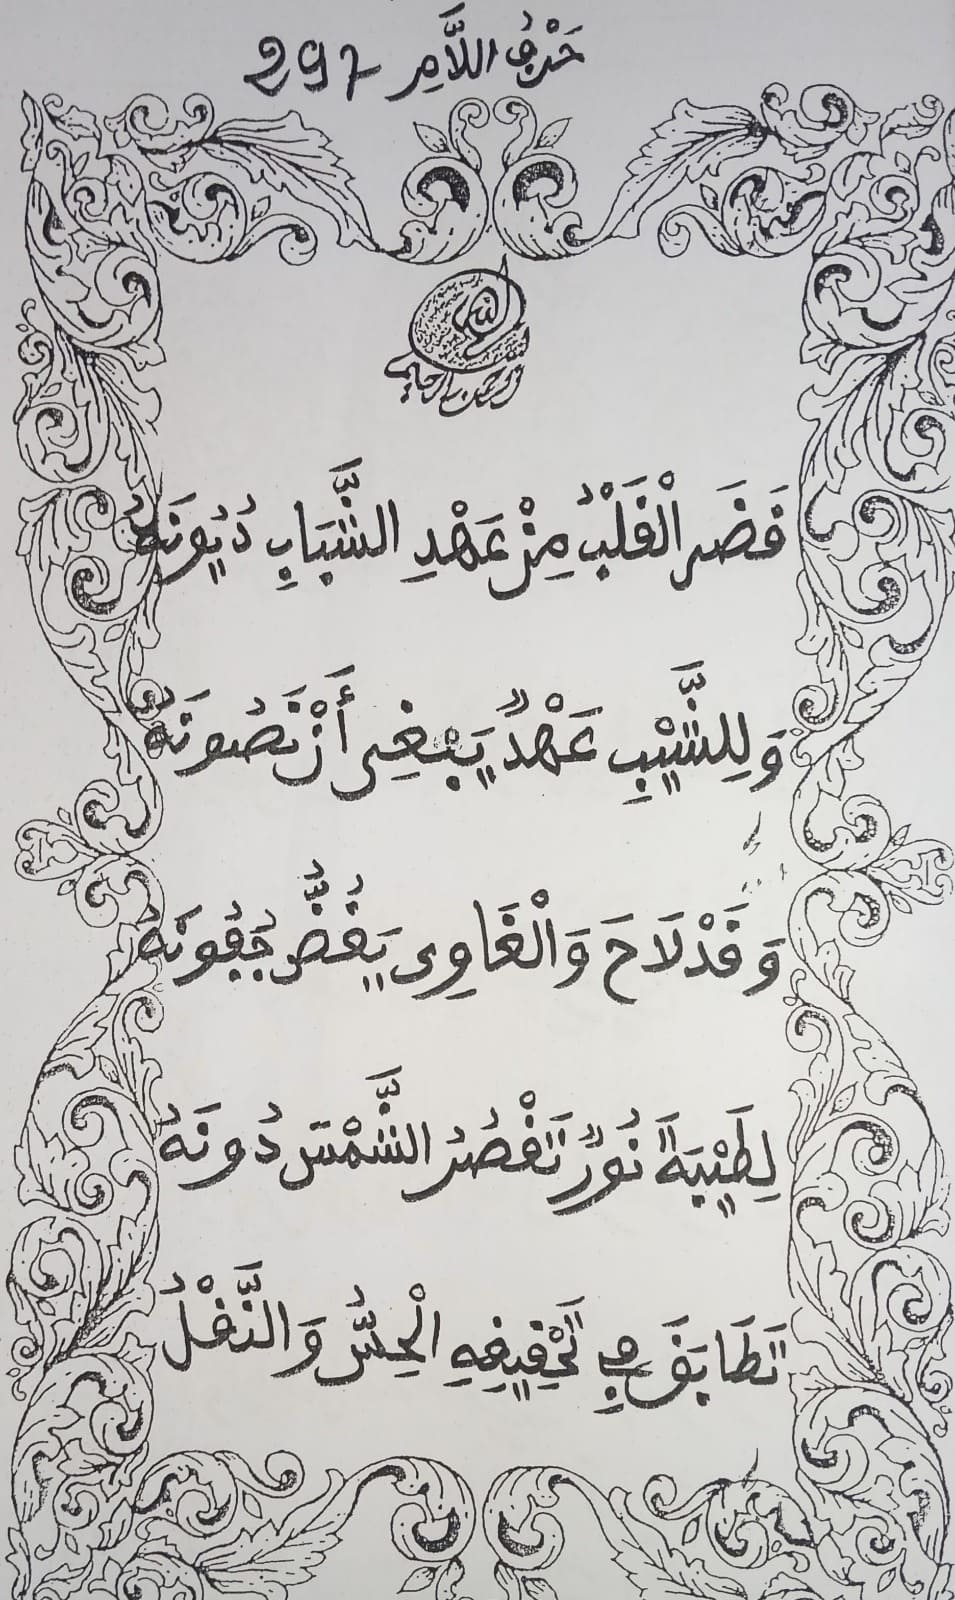 حَرْفُ اللَّامِ 297
بسم الله الرحمن الرحيم
قَضَى الْقَلْبُ مِنْ عَهْدِ الشَّبَابِ دُيُونَهُ
وَلِلشَّيْبِ عَهْدٌ يَنْبَغِي أَنْ نَصُونَهُ
وَقَدْ لَاحَ وَالْغَاوِي يَغُضُّ جُفُونَهُ
لِطَيْبَةَ نُورٌ تَقْصُرُ الشَّمْسُ دُونَهُ
تَطَابَقَ فِي تَحْقِيقِهِ الْحِسُّ وَالنَّقْلُ